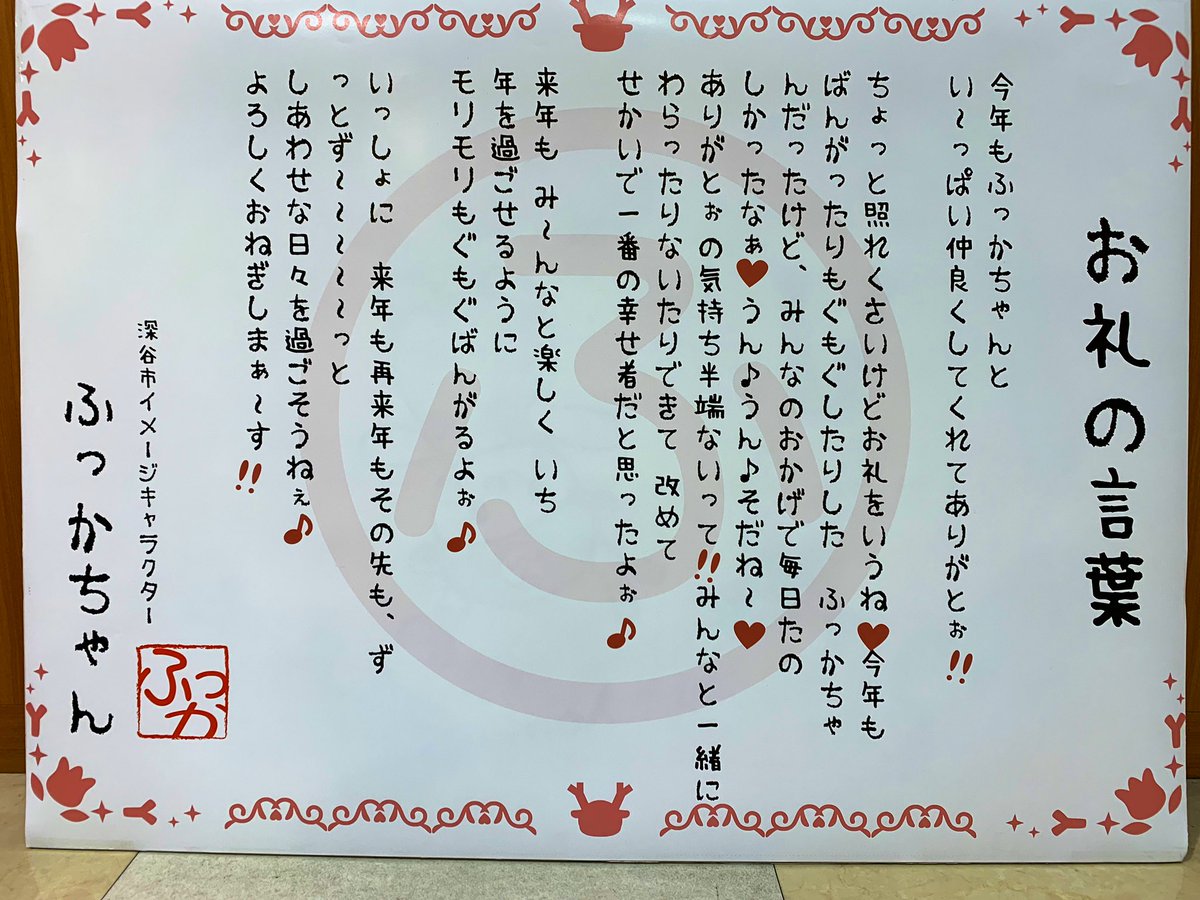 お礼の言葉
今年もふっかちゃんと
い～っぱい仲良くしてくれてありがとぉ!!
ちょっと照れくさいけどお礼をいうね♥今年も
ばんがったりもぐもぐしたりした　ふっかちゃ
んだったけど、みんなのおかげで毎日たの
しかったなぁ♥うん♪うん♪そだね～♥
ありがとぉの気持ち半端ないって!!みんなと一緒に
わらったりないたりできて 改めて
せかいで一番の幸せ者だと思ったよぉ♪
来年も み～んなと楽しく いち
年を過ごせるように
モリモリもぐもぐばんがるよぉ♪
いっしょに　来年も再来年もその先も、ず
っとず～～～～っと
しあわせな日々を過ごそうねぇ♪
よろしくおねぎしまぁ～す!!
深谷市イメージキャラクター
ふっかちゃん
ふっか
ふ